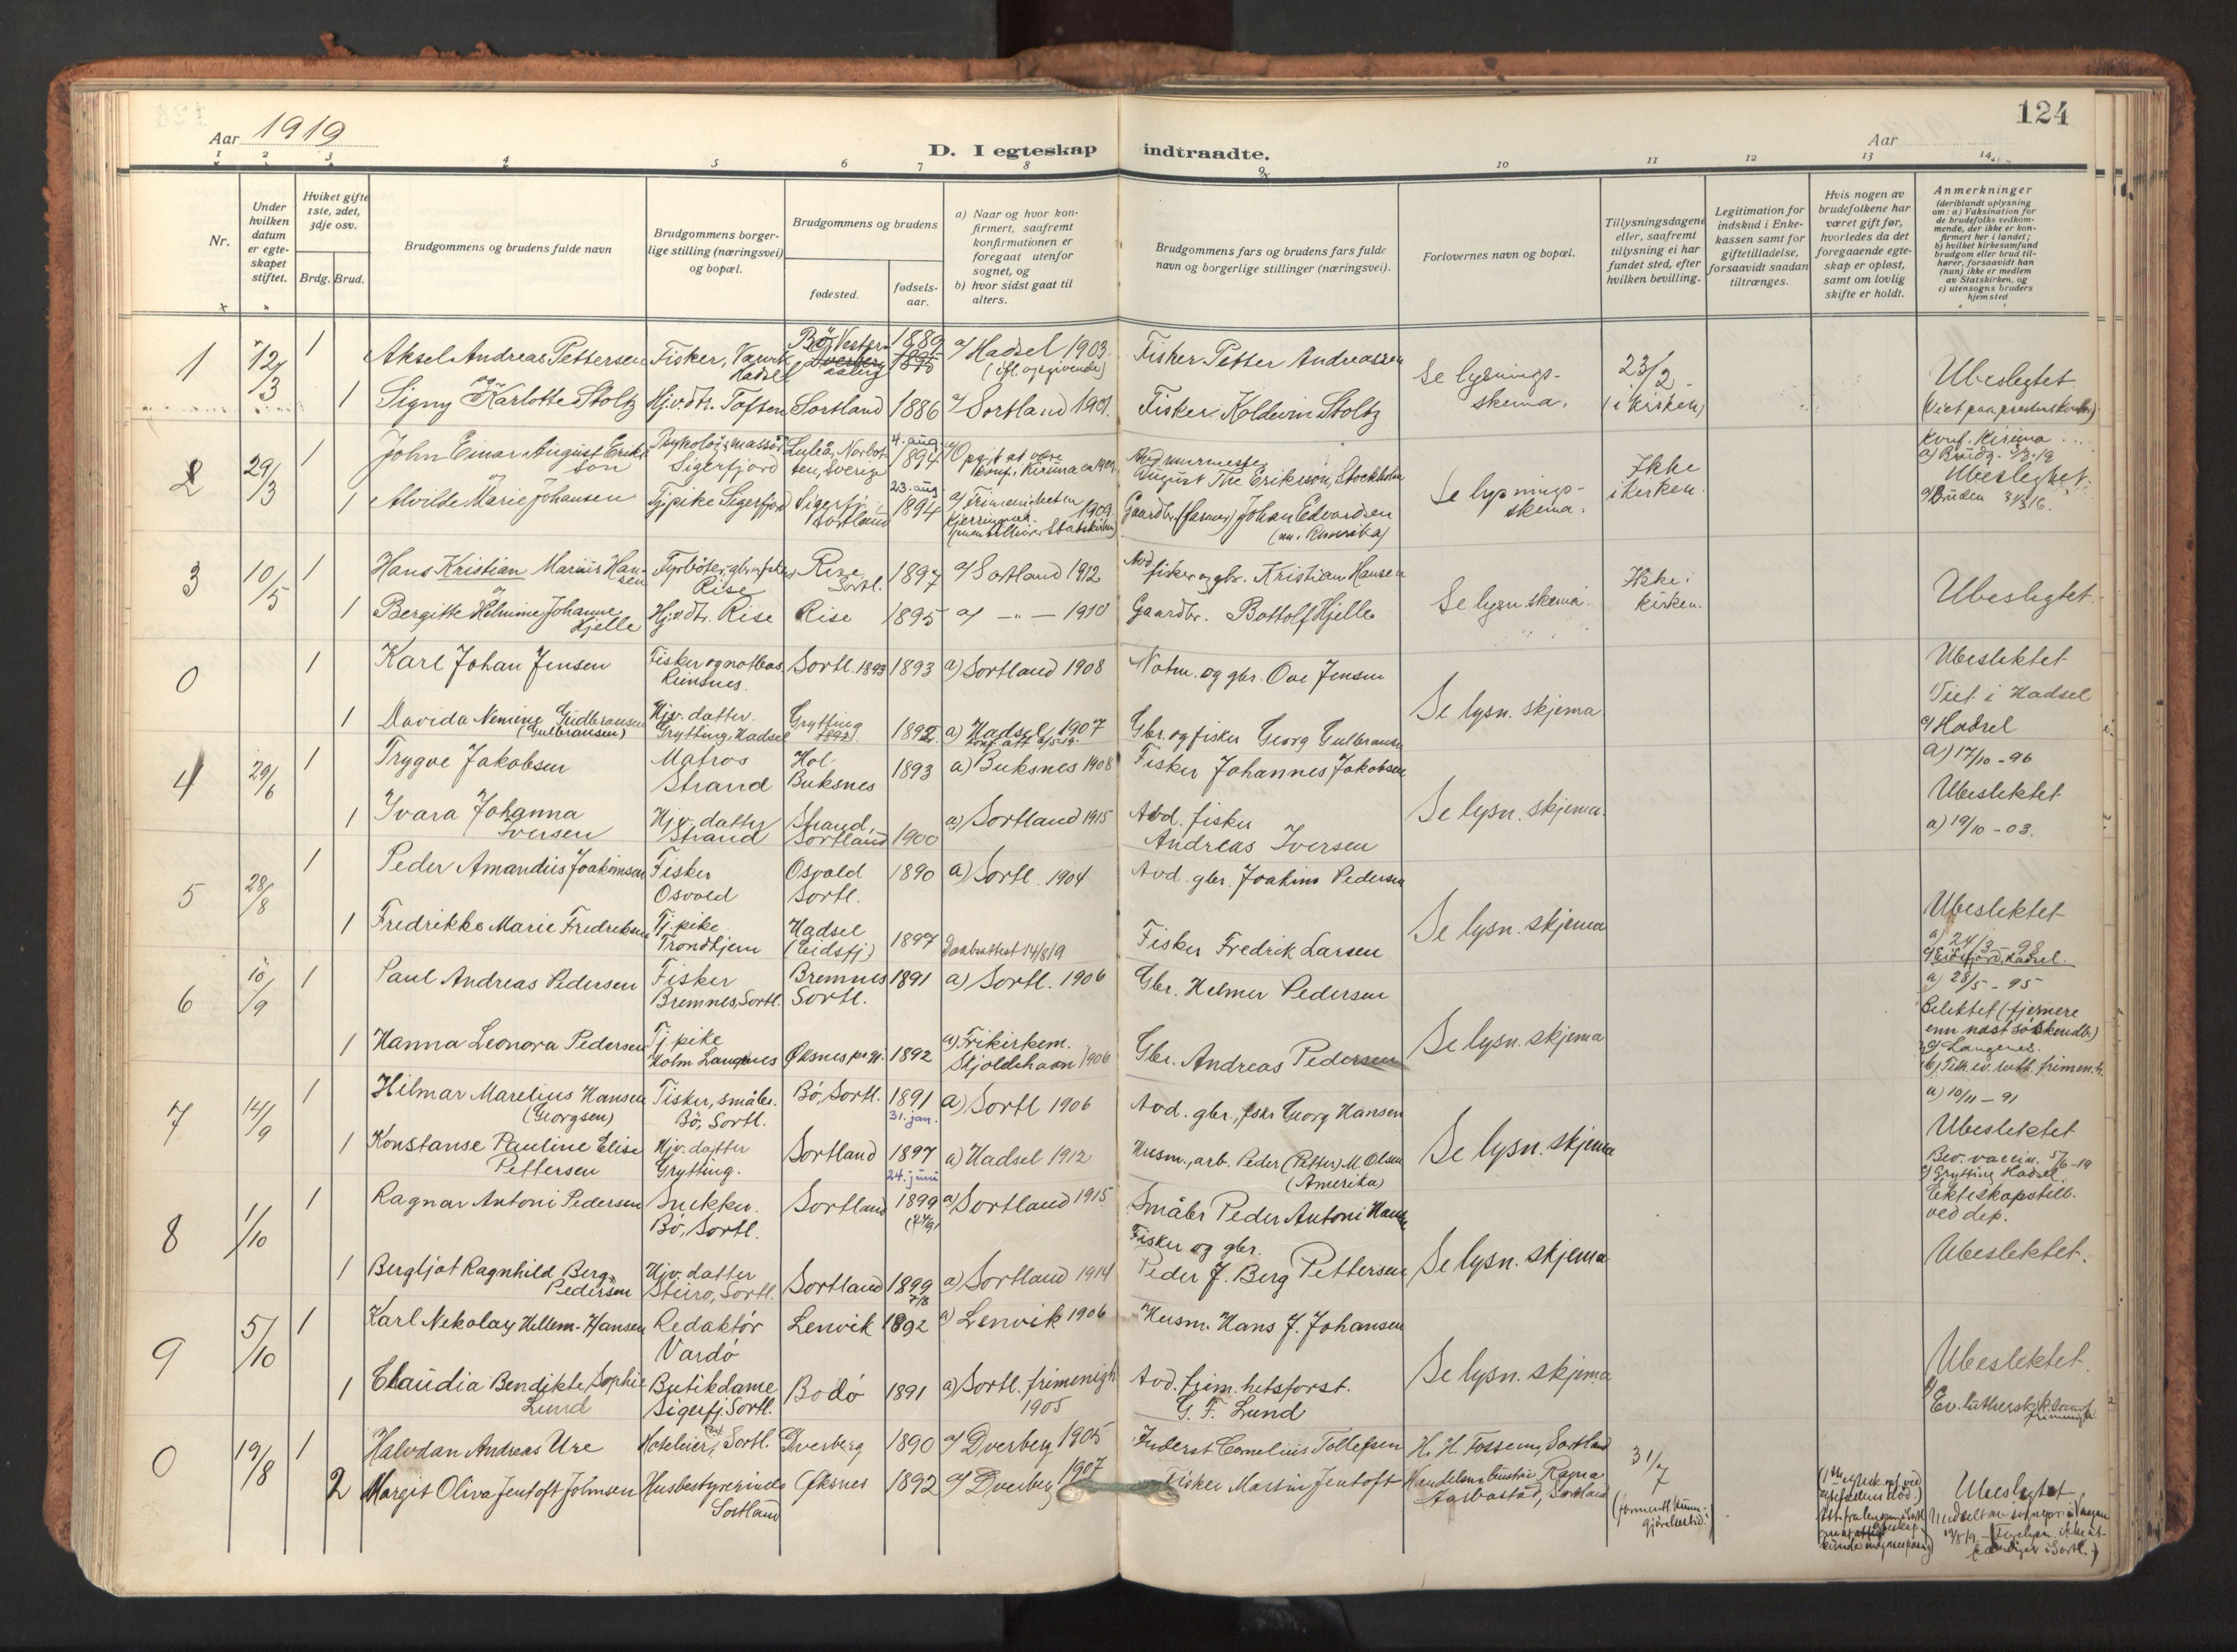 124
Aar 1919
D. I egteskap indtraadte.
Aar
1 2 3 4 5 6 7 8 9 10 11 12 13 14
Nr.
Under hvilken datum er egteskapet stiftet.
Hvilket gifte 1ste, 2det, 3dje osv.
Brdg. Brud.
Brudgommens og brudens fulde navn
Brudgommens borgerlige stilling (næringsvei) og bopæl.
Brudgommens og brudens
fødested.
fødsels-aar.
a) Naar og hvor konfirmert, saafremt konfirmationen er foregaat utenfor sognet, og
b) hvor sidst gaat til alters.
Brudgommens fars og brudens fars fulde navn og borgerlige stillinger (næringsvei).
Forlovernes navn og bopæl.
Tillysningsdagene eller, saafremt tillysning ei har fundet sted, efter hvilken bevilling.
Legitimation for indskud i Enkekassen samt for giftetilladelse, forsaavidt saadan tiltrænges.
Hvis nogen av brudefolkene har været gift før, hvorledes da det foregaaende egteskap er opløst, samt om lovlig skifte er holdt.
Anmerkninger (deriblandt oplysning om: a) Vaksination for de brudefolks vedkommende, der ikke er konfirmert her i landet; b) hvilket kirkesamfund brudgom eller brud tilhører, forsaavidt han (hun) ikke er medlem av Statskirken, og c) utensogns bruders hjemsted
1 12/3 1 Aksel Andreas Pettersen Fisker, Hadsel Bö, Vester 1889 a/ Hadsel 1903 Fisker Petter Andreassen Se lysnings-skema. 23/2 (i kirken) Ubeslegtet
1 Signy Karlotte Stoltz Hj.v.dtr. Toften Sortland 1886 a/ Sortland 1901. Fisker Koldevin Stoltz
2 29/3 1 John Einar August Erikson Sigerfjord Luleå, Norbotten, Sverig 4. aug. 1894 August Eriksson, Stockholm Se lysnings-skema. Ikke i kirken. Konf. Kiruna Ubeslegtet.
1 Alvilde Marie Johansen Tj.pike Sigerfjord Sigerfj. Sortland 23. aug. 1894 a/ Frimenigheten 1909 Gaardbr. Johan Edvardsen (nu i Amerika) Bruden
3 10/5 1 Hans Kristian Marius Hansen Fyrböter, Rise Rise Sortl. 1897 a/ Sortland 1912 Avd fisker og gbr. Kristian Hansen Se lysn. skema. Ikke i kirken. Ubeslegtet.
1 Bergitte Helmine Johanne Hjelle Hj.v.dtr. Rise Rise 1895 a/ -"- 1910 Gaardbr. Bottolf Hjelle
0 1 Karl Johan Jensen Fisker og notbas Reinsnes. Sortl. 1893 1893 a) Sortland 1908 Notm. og gbr. Ove Jensen Se lysn. skjema Ubeslektet Viet i Hadsel
1 Davida Nemine Gudbransen (Gulbransen) Hjv. datter. Grytting, Hadsel Grytting 1892. a) Hadsel 1907 Gbr. og fisker Georg Gulbransen c) Hadsel
4 29/6 1 Trygve Jakobsen Matros Strand Hol Buksnes 1893 a) Buksnes 1908 Fisker Johannes Jakobsen Se lysn. skjema. a) 17/10 - 96 Ubeslektet
1 Ivara Johanna Iversen Hjv. datter Strand Strand, Sortland 1900 a) Sortland 1915 Avd. fisker Andreas Iversen a) 19/10 - 03.
5 28/8 1 Peder Amandus Joakimsen Fisker Osvold Osvold Sortl. 1890 a) Sortl. 1904 Avd. gbr. Joakim Pedersen Se lysn. skjema Ubeslektet
1 Fredrikke Marie Fredriksen Tj. pike Trondhjem Hadsel (Eidsfj) 1897 Daabsattest 14/8 19 Fisker Fredrik Larsen a) 24/3 - 98 c) Eidsfjord, Hadsel.
6 10/9 1 Paul Andreas Pedersen Fisker Bremnes, Sortl. Bremnes Sortl. 1891 a) Sortl. 1906 Gbr. Helmer Pedersen Se lysn. skjema a) 28/5 - 95 Beslektet (fjernere enn næst søskendb.)
1 Hanna Leonora Pedersen Tj. pike Holm Langenes Øksnes 1892 a) Frikirkem. Skjoldehavn 1906 Gbr. Andreas Pedersen c) Langenes.
7 14/9 1 Hilmar Marelius Hansen (Georgsen) Fisker, småbr. Bø, Sortl. Bø, Sortl. 1891 31. jan. a) Sortl 1906 Avd. gbr., fskr Georg Hansen Se lysn. skjema a) 10/11 - 91 Ubeslektet
1 Konstanse Pauline Elise Pettersen Hjv. datter Grytting. Sortland 1897 24. juni a) Hadsel 1912 Husm., arb. Peder (Petter) M. Olsen (Amerika) Bev. vaccin. 5/6 - 19 c) Grytting, Hadsel.
8 1/10 1 Ragnar Antoni Pedersen Snekker. Bø, Sortl. Sortland 1899 a) Sortland 1915 Småbr Peder Antoni Hansen Se lysn. skjema Ekteskapstill. ved dep.
1 Bergljot Ragnhild Berg Pedersen Hjv. datter Steiro, Sortl. Sortland 1899 7/8 a) Sortland 1914 Fisker og gbr. Peder J. Berg Pettersen Ubeslektet.
9 5/10 1 Karl Nekolay Hellem-Hansen Redaktør Vardø Lenvik 1892 a) Lenvik 1906 Husm. Hans J. Johansen Se lysn. skjema Ubeslektet.
1 Claudia Bendikte Sophie Lund Butikdame Sigerfj. Sortl. Bodø 1891 a) Sortl. frimenigh 1905 Avd. frim.hetsforst. G. F. Lund Ev. luthersk
0 19/8 1 Halvdan Andreas Ure Hoteleier, Sortl. Dverberg 1890 a/ Dverberg 1905 Inderst Cornelius Tollefsen H. H. Fossem, Sortland 31/7 Ubeslegtet
2 Margit Oliva Jentoft Johnsen Husbestyrerinde Sortland Øksnes 1892 a/ Dverberg 1907 Fisker Martin Jentoft Ragna Aarbostad, Sortland